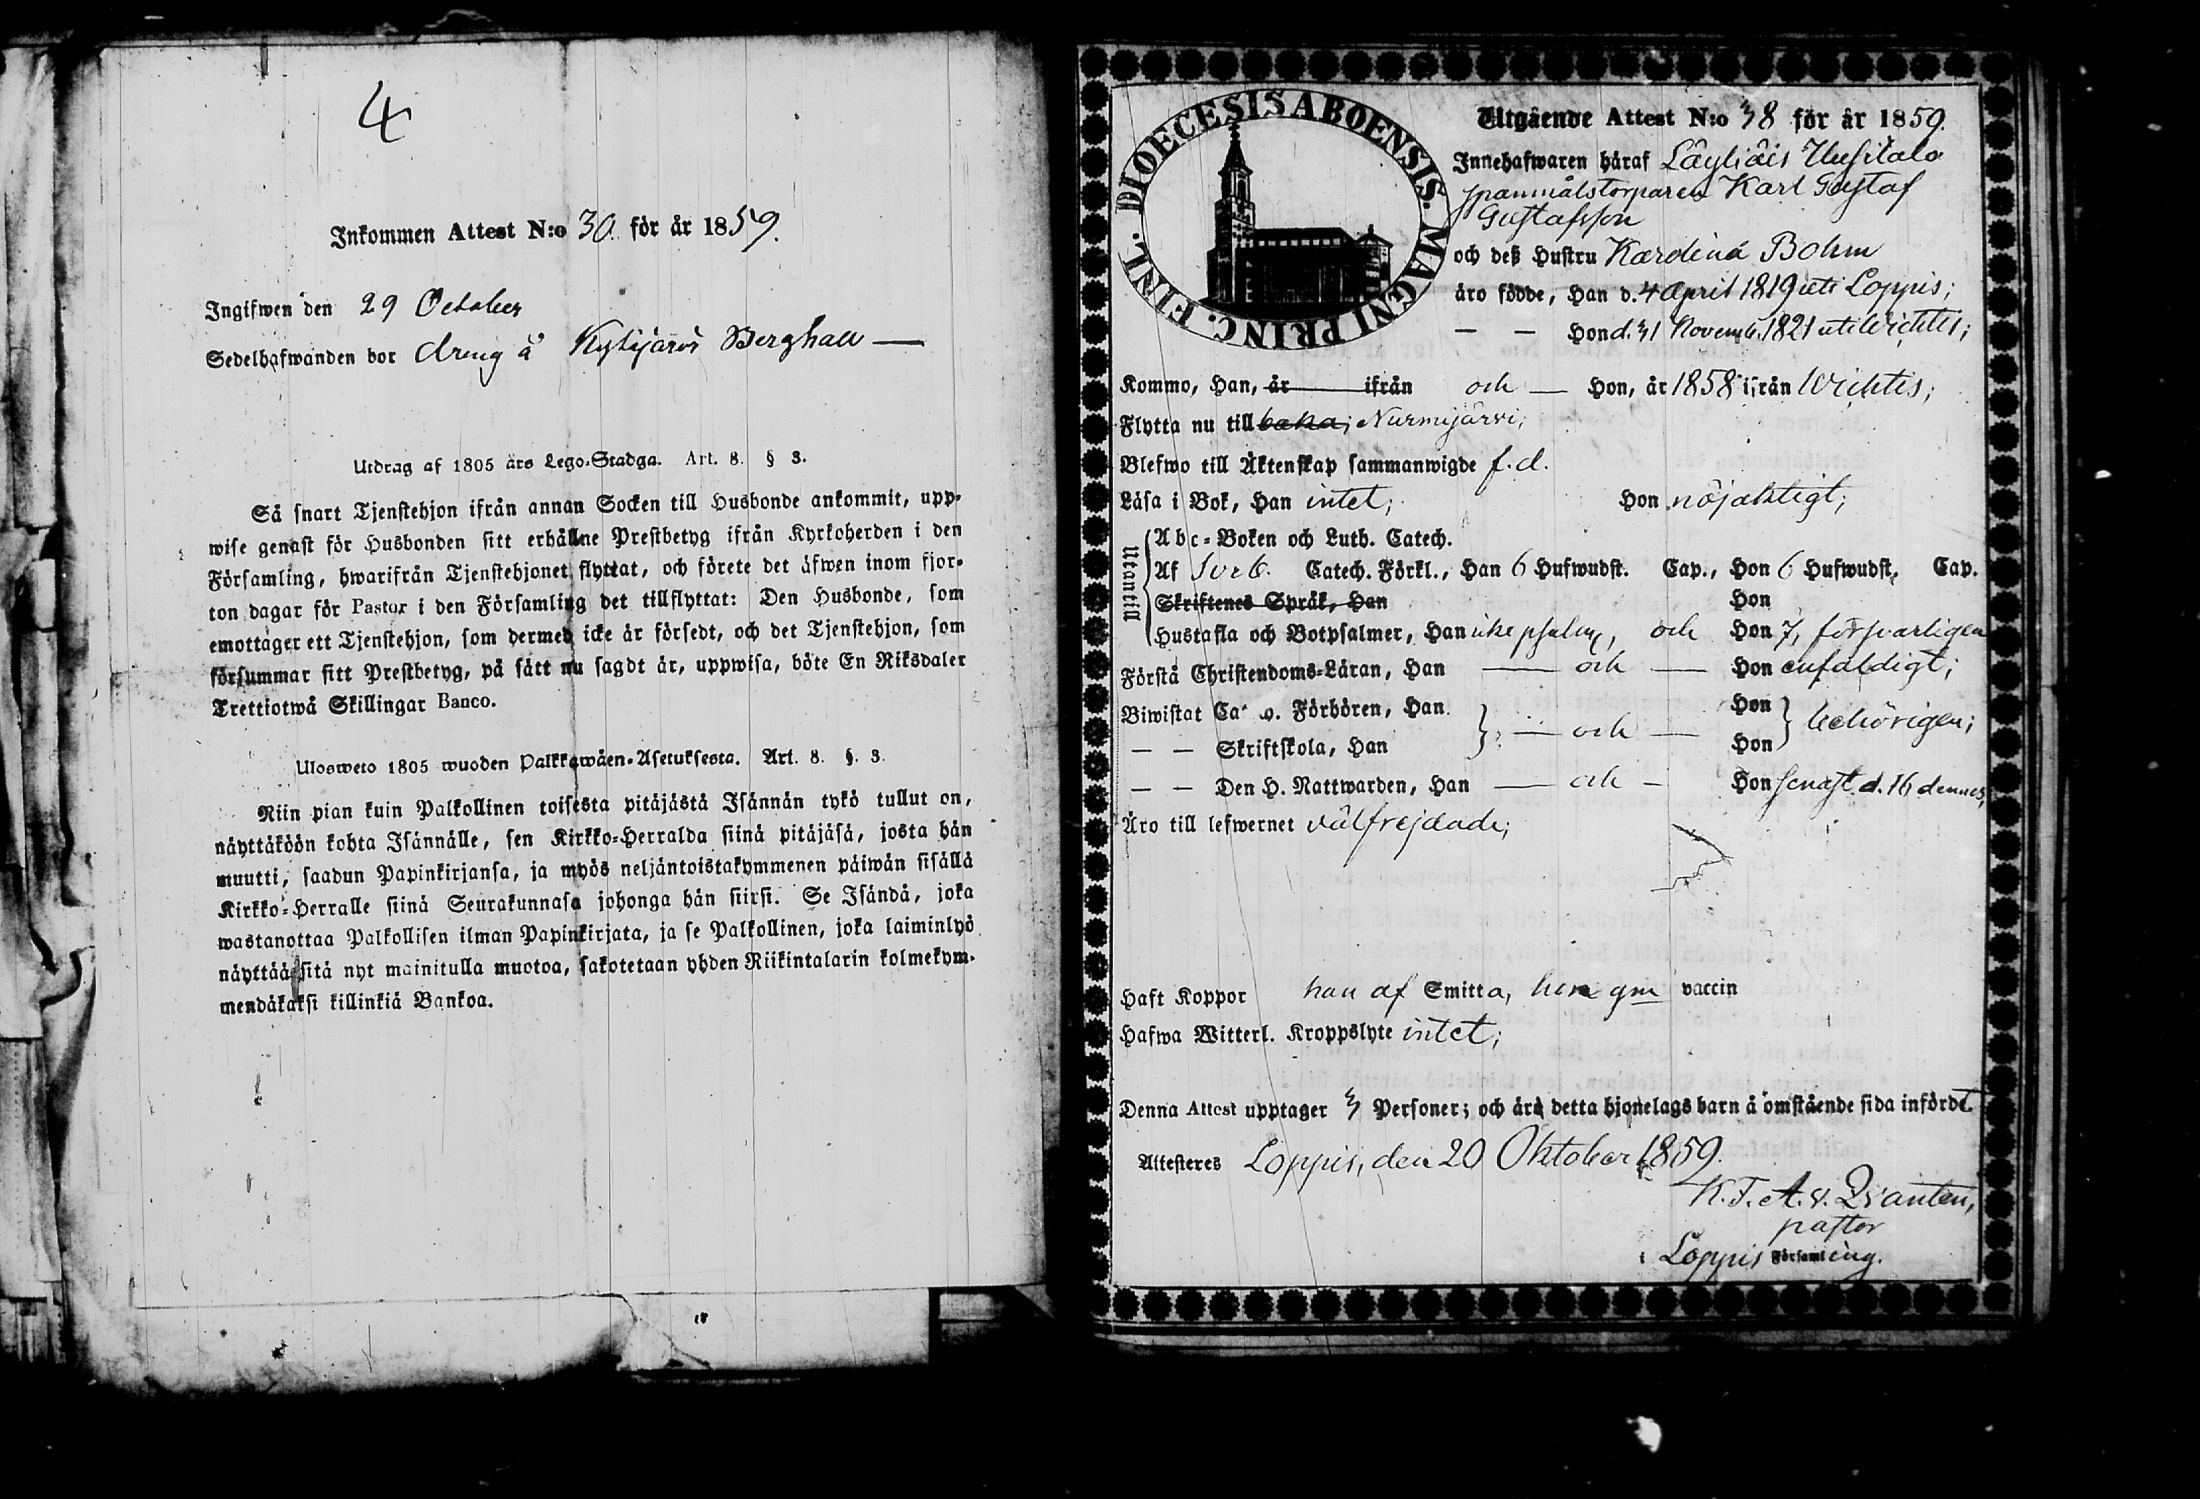 4
Inkommen Attest N:o 30. för år 1859.
Ingifwen den 29 October
Sedelhafwanden bor dreng å Kytäjärvi Berghall —
Utdrag af 1805 års Lego-Stadga. Art. 8. § 3.
Så snart Tjenstehjon ifrån annan Socken till Husbonde ankommit, upp-
wise genast för Husbonden sitt erhållne Prestbetyg ifrån Kyrkoherden i den
Församling, hwarifrån Tjenstehjonet flyttat, och förete det äfwen inom fjor-
ton dagar för Pastor i den Församling det tillflyttat: Den Husbonde, som
emottager ett Tjenstehjon, som dermed icke är försedt, och det Tjenstehjon, som
försummar sitt Prestbetyg, på sätt nu sagdt är, uppwisa, böte En Riksdaler
Trettiotwå Skillingar Banco.
Ulosweto 1805 wuoden Palkkawäen-Asetuksesta. Art. 8. §. 3.
Niin pian kuin Palkollinen toisesta pitäjästä Isännän tykö tullut on,
näyttäköön kohta Isännälle, sen Kirkko-Herralda siinä pitäjäsä, josta hän
muutti, saadun Papinkirjansa, ja myös neljäntoistakymmenen päiwän sisällä
Kirkko-Herralle siinä Seurakunnasa johonga hän siirsi. Se Isändä, joka
wastanottaa Palkollisen ilman Papinkirjata, ja se Palkollinen, joka laiminlyö
näyttää sitä nyt mainitulla muotoa, sakotetaan yhden Riikintalarin kolmekym-
mendäkaksi killinkiä Bankoa.
DIOECESIS ABOENSIS. MAGNI PRINC. FINL.
Utgående Attest N:o 38 för år 1859.
Innehafwaren häraf Läyliäis Uusitalo
spanmålstorparen Karl Gustaf
Gustafsson
och deß Hustru Kardina Bohm
äro födde, Han d. 4 April 1819 uti Loppis;
— — Hon d. 31 Novemb. 1821 uti Wichtis;
Kommo, Han, år ifrån och — Hon, år 1858 ifrån Wichtis;
Flytta nu till baka; Nurmijärvi;
Blefwo till Äktenskap sammanwigde f. d.
Läsa i Bok, Han intet; Hon nöjaktigt;
Utantill
Abc-Boken och Luth. Catech.
Af Sveb. Catech. Förkl., Han 6 Hufwudst. Cap., Hon 6 Hufwudst. Cap.
Skriftenes Språk, Han Hon
Hustafla och Botpsalmer, Han icke psalm, och Hon 7, försvarligen
Förstå Christendoms-Läran, Han — och — Hon enfaldigt;
Biwistat Förhören, Han Hon
— och — behörigen;
— — Skriftskola, Han Hon
— — Den H. Nattwarden, Han — och — Hon senast d. 16 dennes,
Äro till lefwernet välfrejdade;
Haft Koppor han af Smitta, hon gm vaccin
Hafwa Witterl. Kroppslyte intet;
Denna Attest upptager 3 Personer; och äro detta hjonelags barn å omstående sida införde
Attesteres Loppis, den 20 Oktober 1859.
K. F. A. v. Qvanten,
pastor
i Loppis Församling.